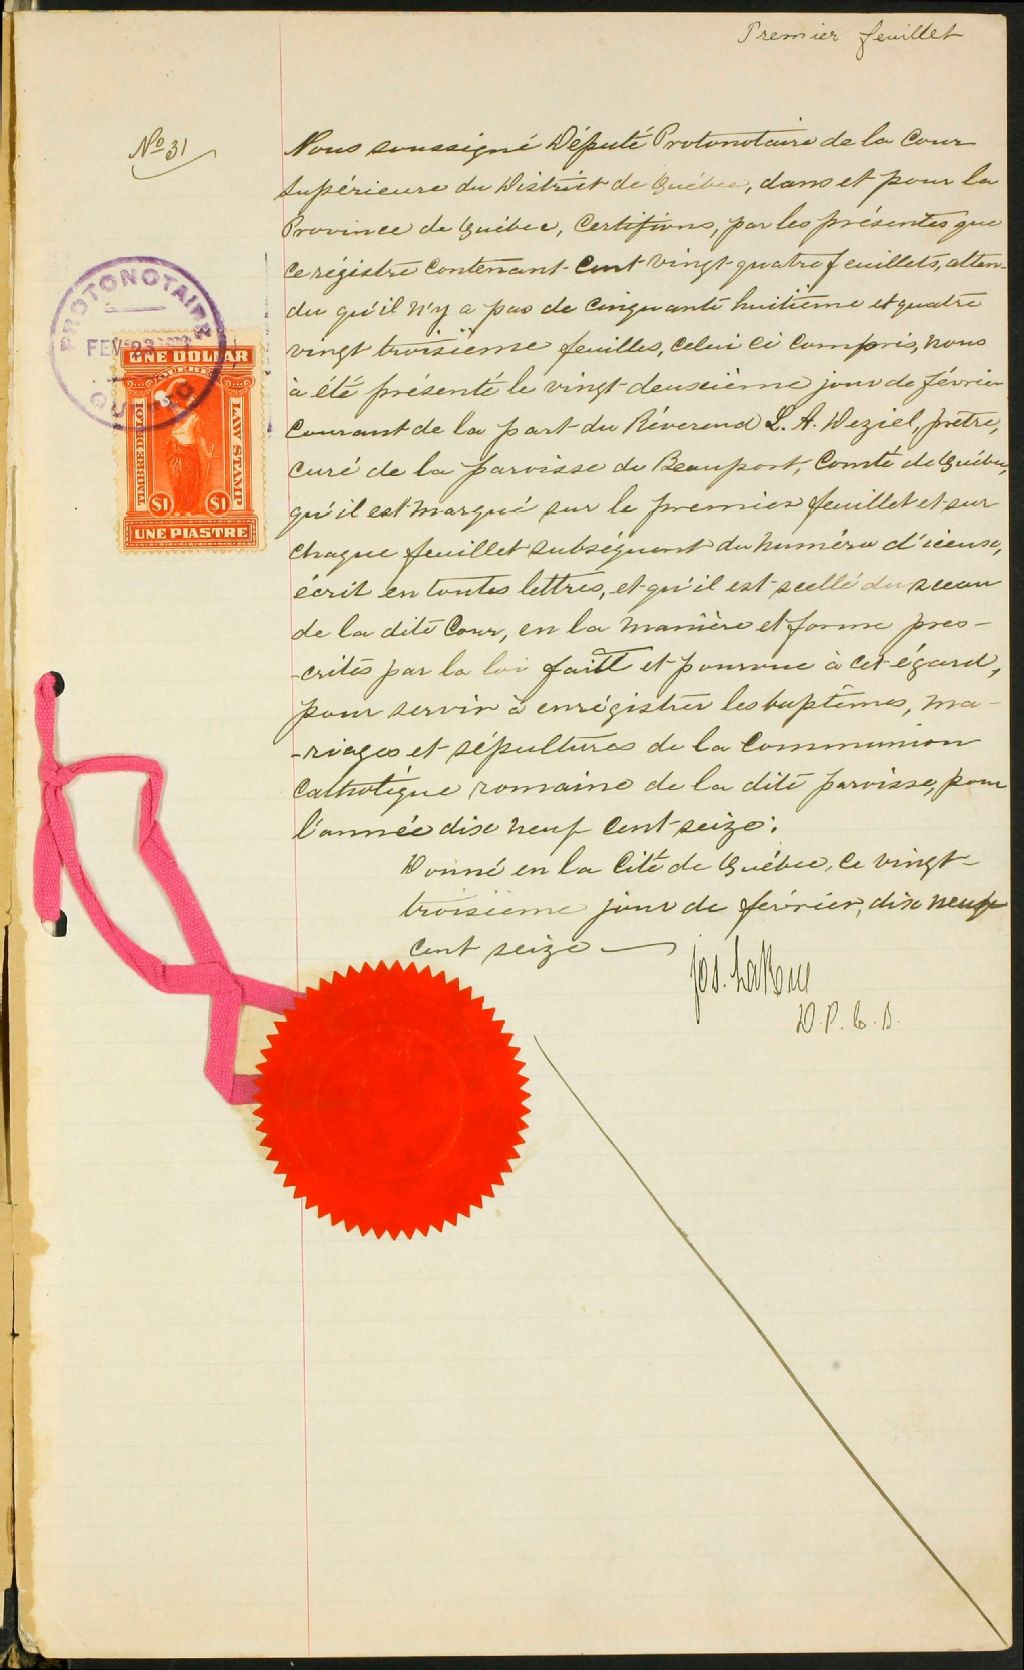 Premier feuillet
No 31
Nous soussigné Député Protonotaire de la Cour
Supérieure du District de Québec, dans et pour la
Province de Québec, Certifions, par les présentes que
ce régistre contenant Cent vingt-quatre feuillets, atten-
du qu'il n'y a pas de cinquante huitième et quatre
vingt troisième feuilles, celui ci compris, nous
à été présenté le vingt-deuxième jour de février
Courant de la part du Révérend L. A. Deziel, prêtre,
curé de la paroisse de Beauport, Comté de Québec,
qu'il est marqué sur le premier feuillet et sur
chaque feuillet subséquent du numéro d'iceux,
écrit en toutes lettres, et qu'il est scellé du sceau
de la dite Cour, en la manière et forme pres-
-crites par la loi faitt et pourvue à cet égard,
pour servir à enrégistrer les baptêmes, ma-
-riages et sépultures de la Communion
Catholique romaine de la dite paroisse, pour
l'année dix neuf cent seize.
Donné en la Cité de Québec, ce vingt-
troisième jour de février, dix neuf
cent seize
Jos. LaRue
D. P. C. S.
PROTONOTAIRE
FEV 23
QUEBEC
ONE DOLLAR
QUEBEC
TIMBRE DE LOI
LAW STAMP
$1 $1
UNE PIASTRE